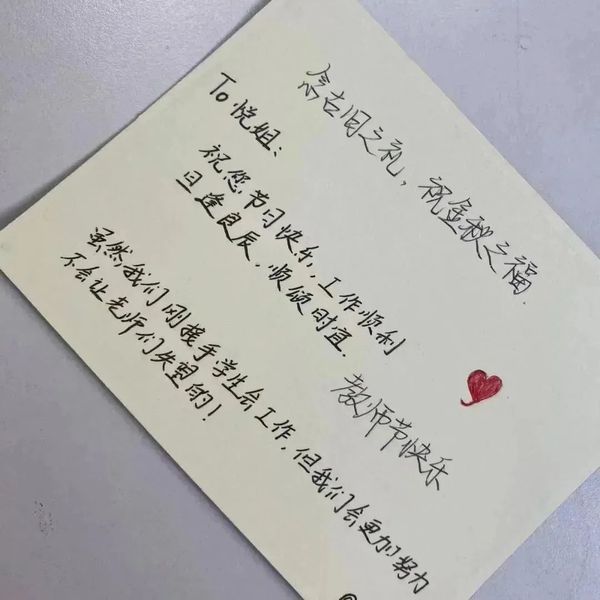 念古旧之礼，祝金秋之福.
To 悦姐：
祝您节日快乐，工作顺利
旦逢良辰，顺颂时宜.
教师节快乐
虽然我们刚接手学生会工作，但我们会更加努力
不会让老师们失望的！